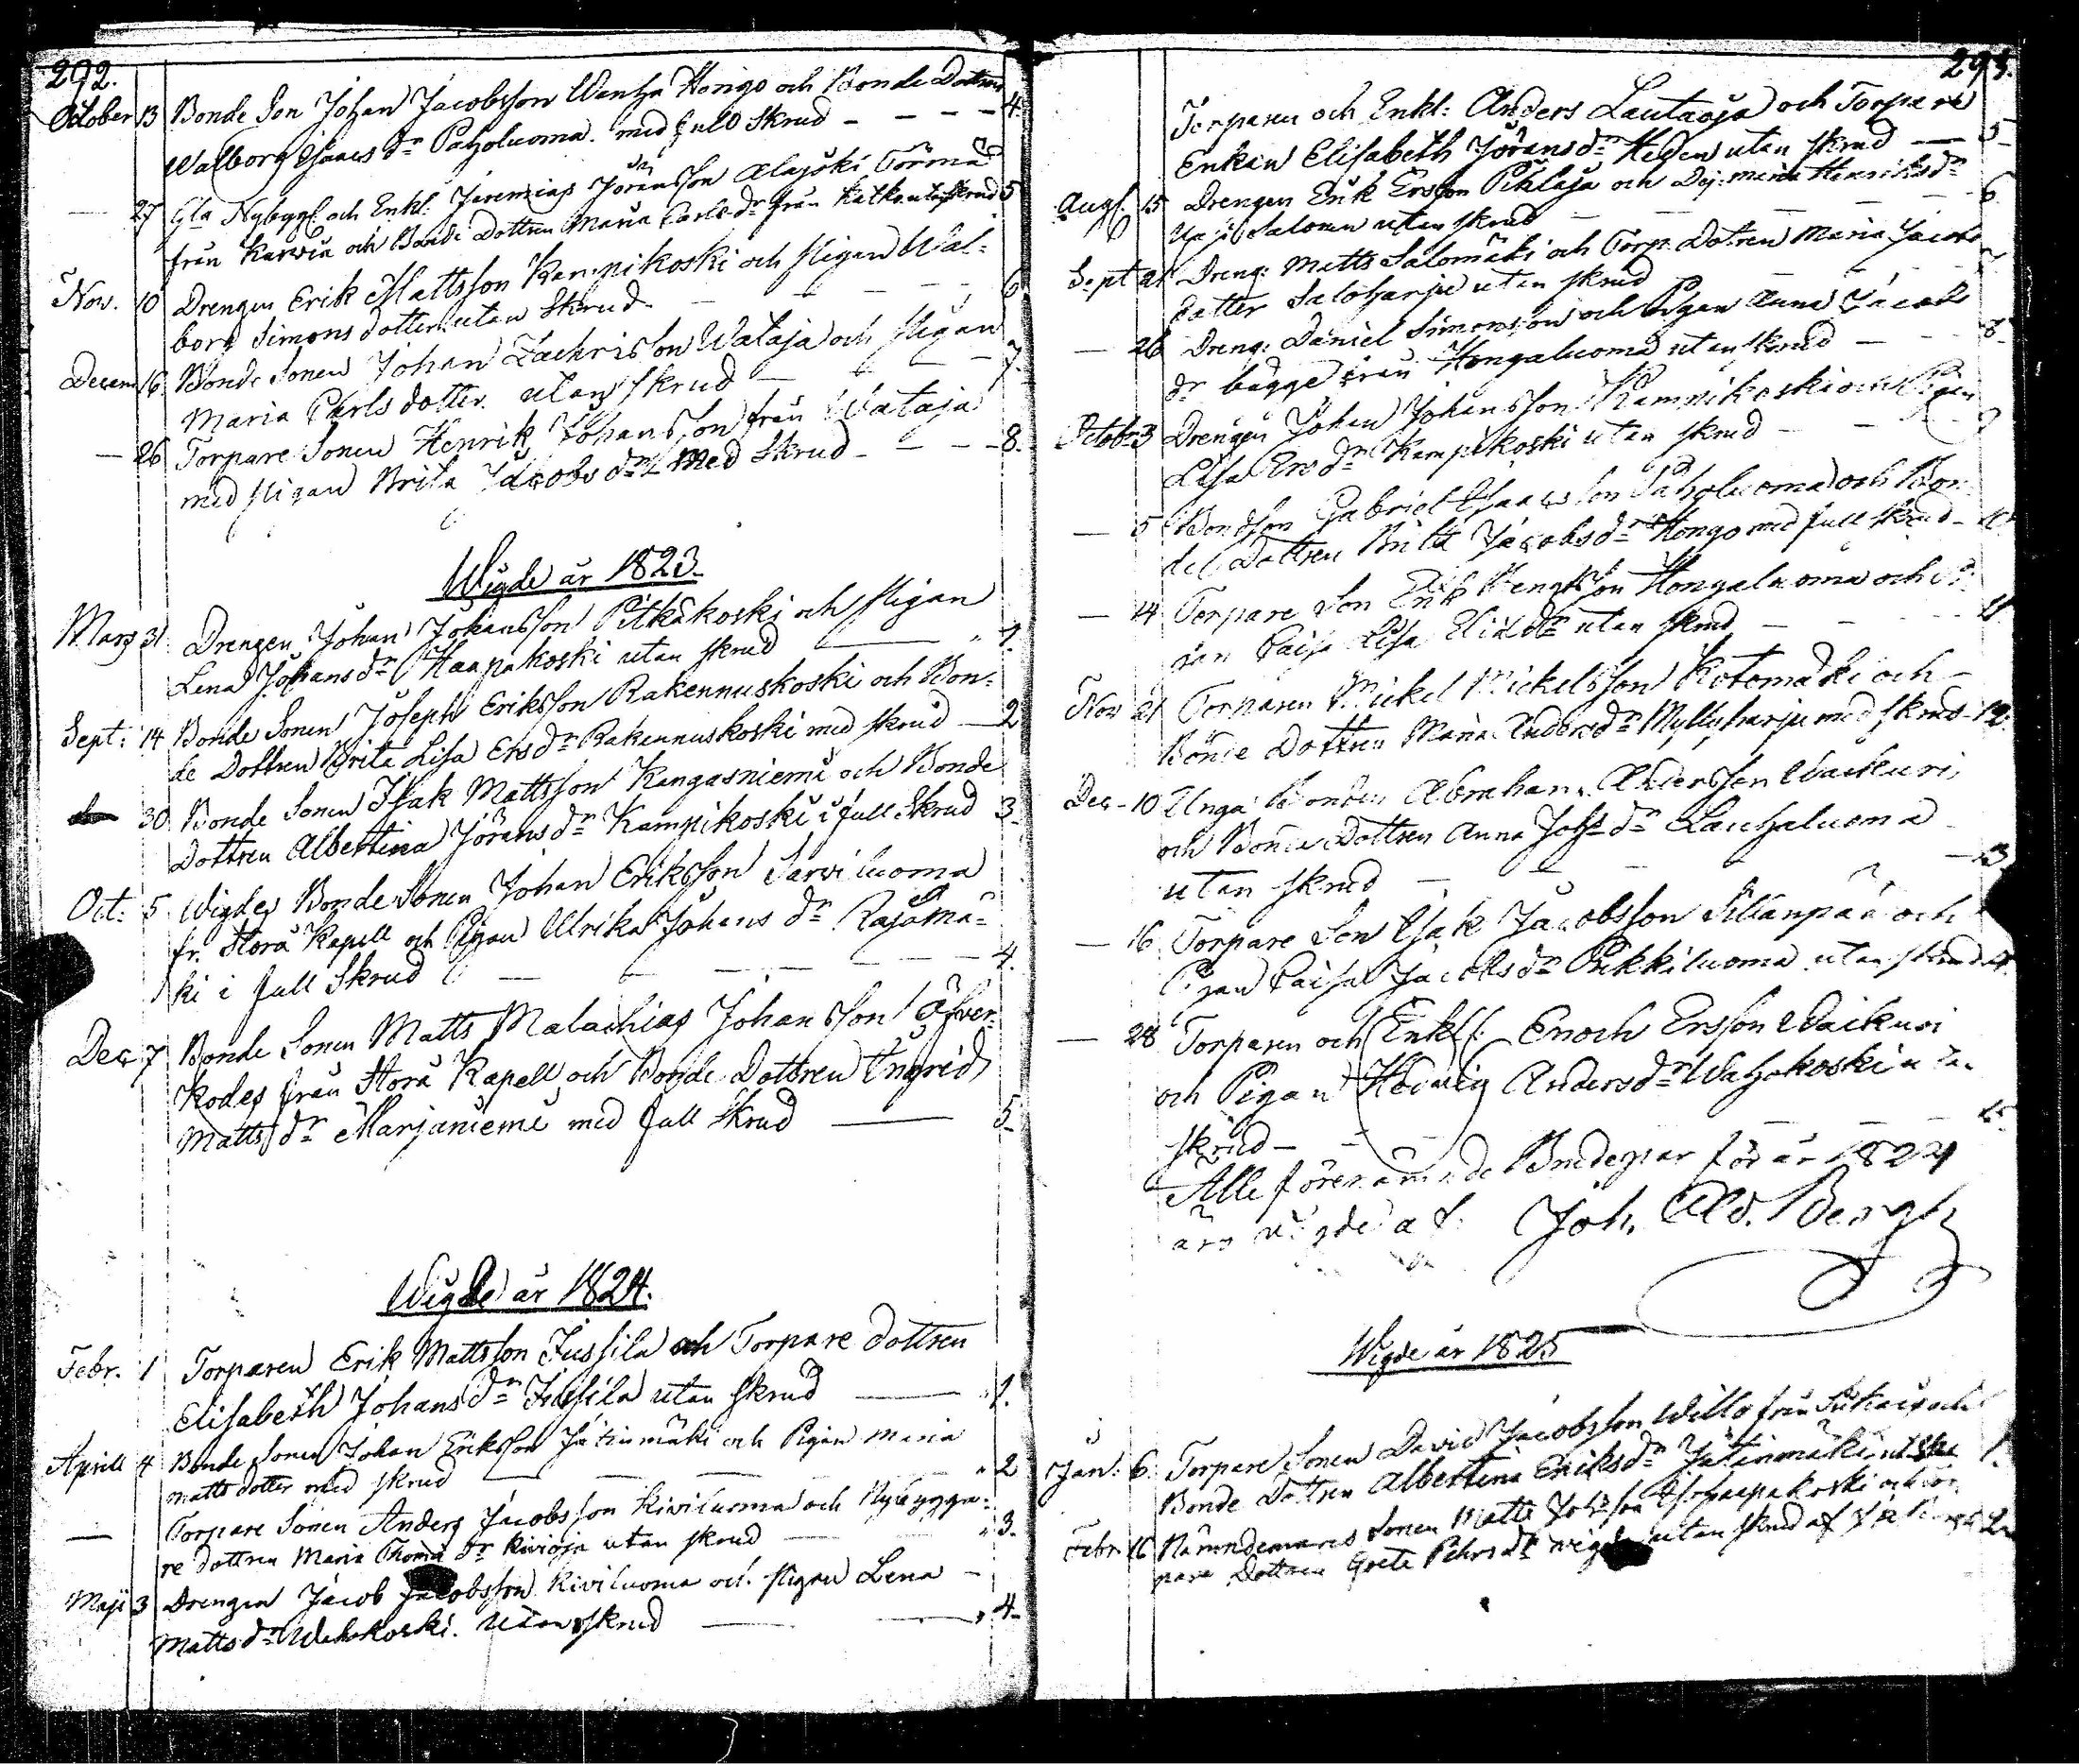 292.
October 13 Bonde Son Johan Jacobsson Wanha Hongo och Bonde Dottren
Walborg Isaacs dr Paholuoma. med full Skrud - - - - 4.
— 27 Gla Nybygg. och Enkl. Jeremias Jöransson Alajoki Törmä
från Karvia och Bonde Dottren Maria Carlsdr från Skrud 5
Nov. 10 Drengen Erik Mattsson Kampikoski och Pigan Wal-
borg Simons dotter utan Skrud - - - - 6
Decem 16 Bonde Sonen Johan Zachrisson Wataja och Pigan
Maria Carls dotter utan skrud - - - 7.
— 26 Torpare Sonen Henrik Johansson från Wataja
med Pigan Brita Jacobs dr med Skrud - - - 8.
Wigde år 1823.
Mars 31 Drengen Johan Johansson Pitkäkoski och Pigan
Lena Johans dr Haapakoski utan skrud — " 1.
Sept: 14 Bonde Sonen Joseph Eriksson Rakennuskoski och Bon-
de Dottren Brita Lisa Ers dr Rakennuskoski med skrud — 2
30 Bonde Sonen Isak Mattsson Kangasniemi och Bonde
Dottren Albertina Jörans dr Kampikoski i full Skrud 3.
Oct: 5 Wigdes Bonde Sonen Johan Eriksson Sarviluoma
fr. Storå Kapell och Pigan Ulrika Johans dr Rajamä-
ki i full Skrud — — — — — 4.
Dec 7 Bonde Sonen Matts Malachias Johansson Öfver-
kodes från Storå Kapell och Bonde Dottren Ingrid
Matts dr Marjaniemi med full Skrud — 5.
Wigde år 1824.
Febr. 1 Torparen Erik Mattsson Jussila och Torpare dottren
Elisabeth Johans dr Jussila utan skrud — " 1.
Aprill 4 Bonde Sonen Johan Eriksson Jätinmäki och Pigan Maria
Matts dotter med skrud — — — " 2
— Torpare Sonen Anders Jacobsson Kiviluoma och Nybygga-
re dottren Maria Thoma dr Kivioja utan skrud — " 3.
Maji 3 Drengen Jacob Jacobsson Kiviluoma och Pigan Lena -
Matts dr Wahokoski. Utan skrud — — " 4.
293.
Torparen och Enkl: Anders Lautaoja och Torpare
Enkan Elisabeth Jörans dr Heden utan skrud — 5
Aug. 15 Drengen Erik Ersson Pihlaja och Maria Henriks dr
Salomon utan skrud — — — — 6
Sept 21 Dreng: Matts Salomäki och Torp. Dotren Maria Jacobs
dotter Saloharju utan skrud — — 7.
— 26 Dreng: Daniel Simonsson och Pigan Anna Jacobs
dr bägge från Hongaluoma utan skrud — — 8.
Octobr 3 Drengen Johan Johansson Kampikoski och Pigan
Lisa Ers dr Kampikoski utan skrud — — 9
— 5 Bondson Gabriel Isaacsson Paholuoma och Bon-
de Dottren Brita Jacobs dr Hongo med full skrud - 10
— 14 Torpare Son Erik Hongaluoma och Pi-
gan Caisa Lisa Elia dr utan skrud — — 11
Nov 21 Torparen Mickel Mickelsson Kotomäki och
Bonde Dottren Maria Anders dr Myllyharju med skrud - 12.
Dec - 10 Unga Bonden Abraham Andersson Waikuri,
och Bonde Dottren Anna Johs dr Lauhaluoma
utan skrud — — — 13
— 16 Torpare Son Isak Jacobsson Sillanpää och
Pigan Caisa Jacobs dr Pukkiluoma utan skrud 14
— 28 Torparen och Enkl: Enoch Ersson Waikuri
och Pigan Hedwig Anders dr Wahokoski utan
skrud — — — — 15
Alla förenämnde Brudepar för år 1824
äro wigde af Joh. Ad. Bergh
Wigde år 1825
Jan: 6. Torpare Sonen David Jacobsson Willo från och
Bonde Dottren Albertina Eriks dr Jätinmäki 1.
Febr 16 Nämndemans Sonen Matts Johsson Haapakoski och Tor-
pare Dottren Greta Pehrs dr wigde utan skrud af 2